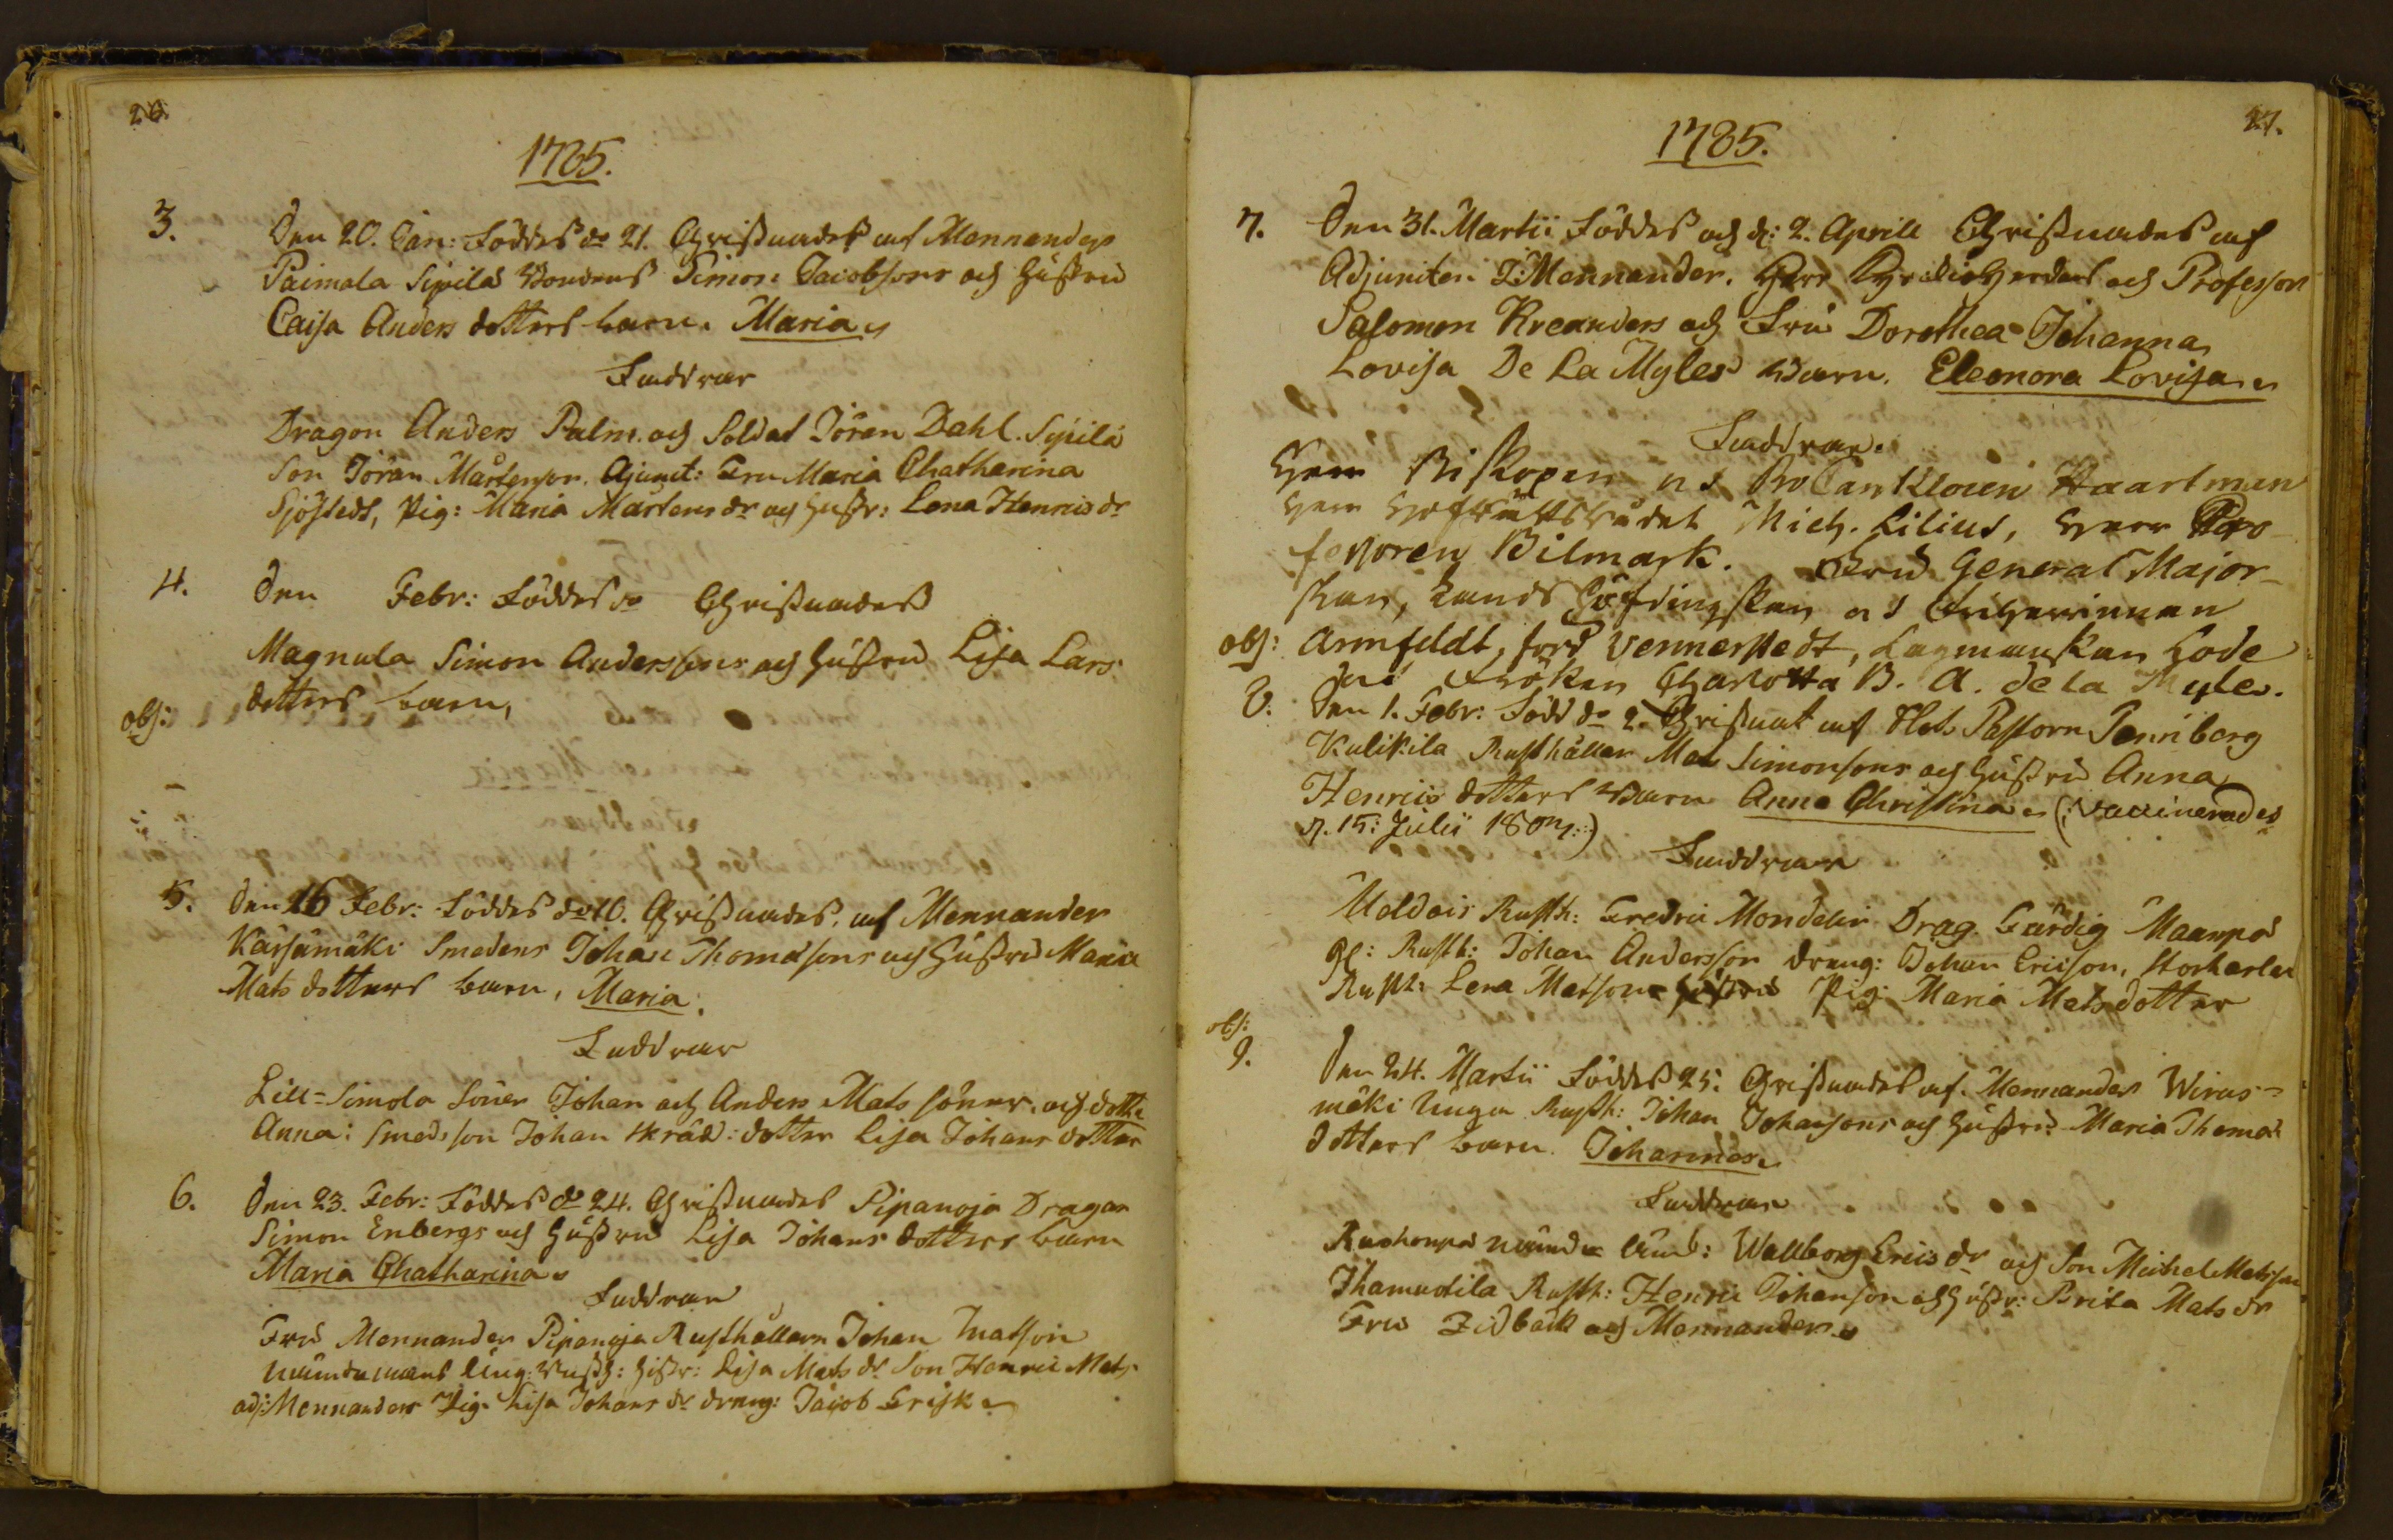 26.
1785.
3. Den 20. Jan: Föddes do 21. Christnades af Mennander
Paimala Sipilä Bondens Simon Jacobsons och Hustru
Caisa Anders dotters barn. Maria
Faddrar
Dragon Anders Palm. och Soldat Jöran Dahl. Sipilä
Son Jöran Mårtenson. Ajunct: Fru Maria Chatharina
Sjöstedt, Pig: Maria Mårtens dr och Hustr: Lena Henrics dr
4. Den Febr: Föddes do Christnades
Magnula Simon Anderssons och Hustru Lisa Lars
dotters barn,
obs:
5. Den 16 Febr: Föddes do Christnades. af Mennander
Kärsämäki Smedens Johan Thomasons och Hustru Maria
Mats dotters barn, Maria.
Faddrar
Lill=Simola Söner Johan och Anders Mats söner. och dott:
Anna: Smeds son Johan skräd: dotter Lisa Johans dotter
6. Den 23. Febr: Föddes do 24. Christnades Pipanoja Dragon
Simon Enbergs och Hustru Lisa Johans dotters barn
Maria Chatharina
Faddrar
Fru Mennander Pipanoja Rusthållarn Johan Matson
Hustr: Lisa Mats dr Son Henric Mats
adj: Mennanders Pig. Lisa Johans dr dräng: Jacob Erisk
27.
1785.
7. Den 31. Martii Föddes och d: 2. Aprill Christnades af
Adjuncten I: Mennander. Herr och Professor
Salomon Kreanders och Fru Dorothea Johanna
Lovisa De La Myles Barn. Eleonora Lovisa
Faddrar.
Herr Biskopen och ProCancleren Haartman
Herr HofRättsRådet Mich. Lilius, Herr Pro-
fessoren Bilmark. Fru General Major-
skan, Landshöfdingskan och Friherrinnan
obs: Armfeldt, född Vennerstedt, Lagmanskan Gode
Fröken Charlotta B. A. de la Myle.
8. Den 1. Febr: Född do 2. Christnat af Hets Pastorn Pennberg
Kulikila Rusthållar Mats Simonsons och Hustru Anna
Henrics dotters Barn Anna Christina (: Vaccinerades
d. 15: Julii 1807:)
Faddrar
Moldois Rusth: Fredric Mondelin Drag. Färdig Maanpä
gl: Rusth: Johan Andersson dräng: Johan Ericson,
Rusth: Lena Matsons Hustru Pig: Maria Matsdotter
obs:
9. Den 24. Martii Föddes 25. Christnades af. Mennander Wirus=
mäki Unga Rusth: Johan Johansons och Hustru Maria Thomas
dotters barn. Johannes
Faddrar
Wallborg Erics dr och Son Michel Matsson
Rusth: Henric Johanson och Hustr: Brita Mats dr
Fru Zidbäck och Mennander